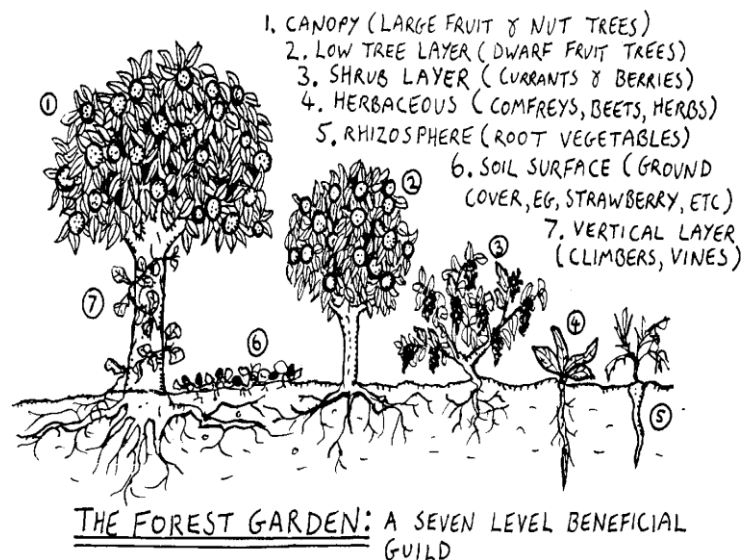 1. CANOPY (LARGE FRUIT & NUT TREES)
2. LOW TREE LAYER (DWARF FRUIT TREES)
3. SHRUB LAYER (CURRANTS & BERRIES)
4. HERBACEOUS (COMFREYS, BEETS, HERBS)
5. RHIZOSPHERE (ROOT VEGETABLES)
6. SOIL SURFACE (GROUND
COVER, EG, STRAWBERRY, ETC)
7. VERTICAL LAYER
(CLIMBERS, VINES)
1
2
3
7
6
4
5
THE FOREST GARDEN: A SEVEN LEVEL BENEFICIAL
GUILD